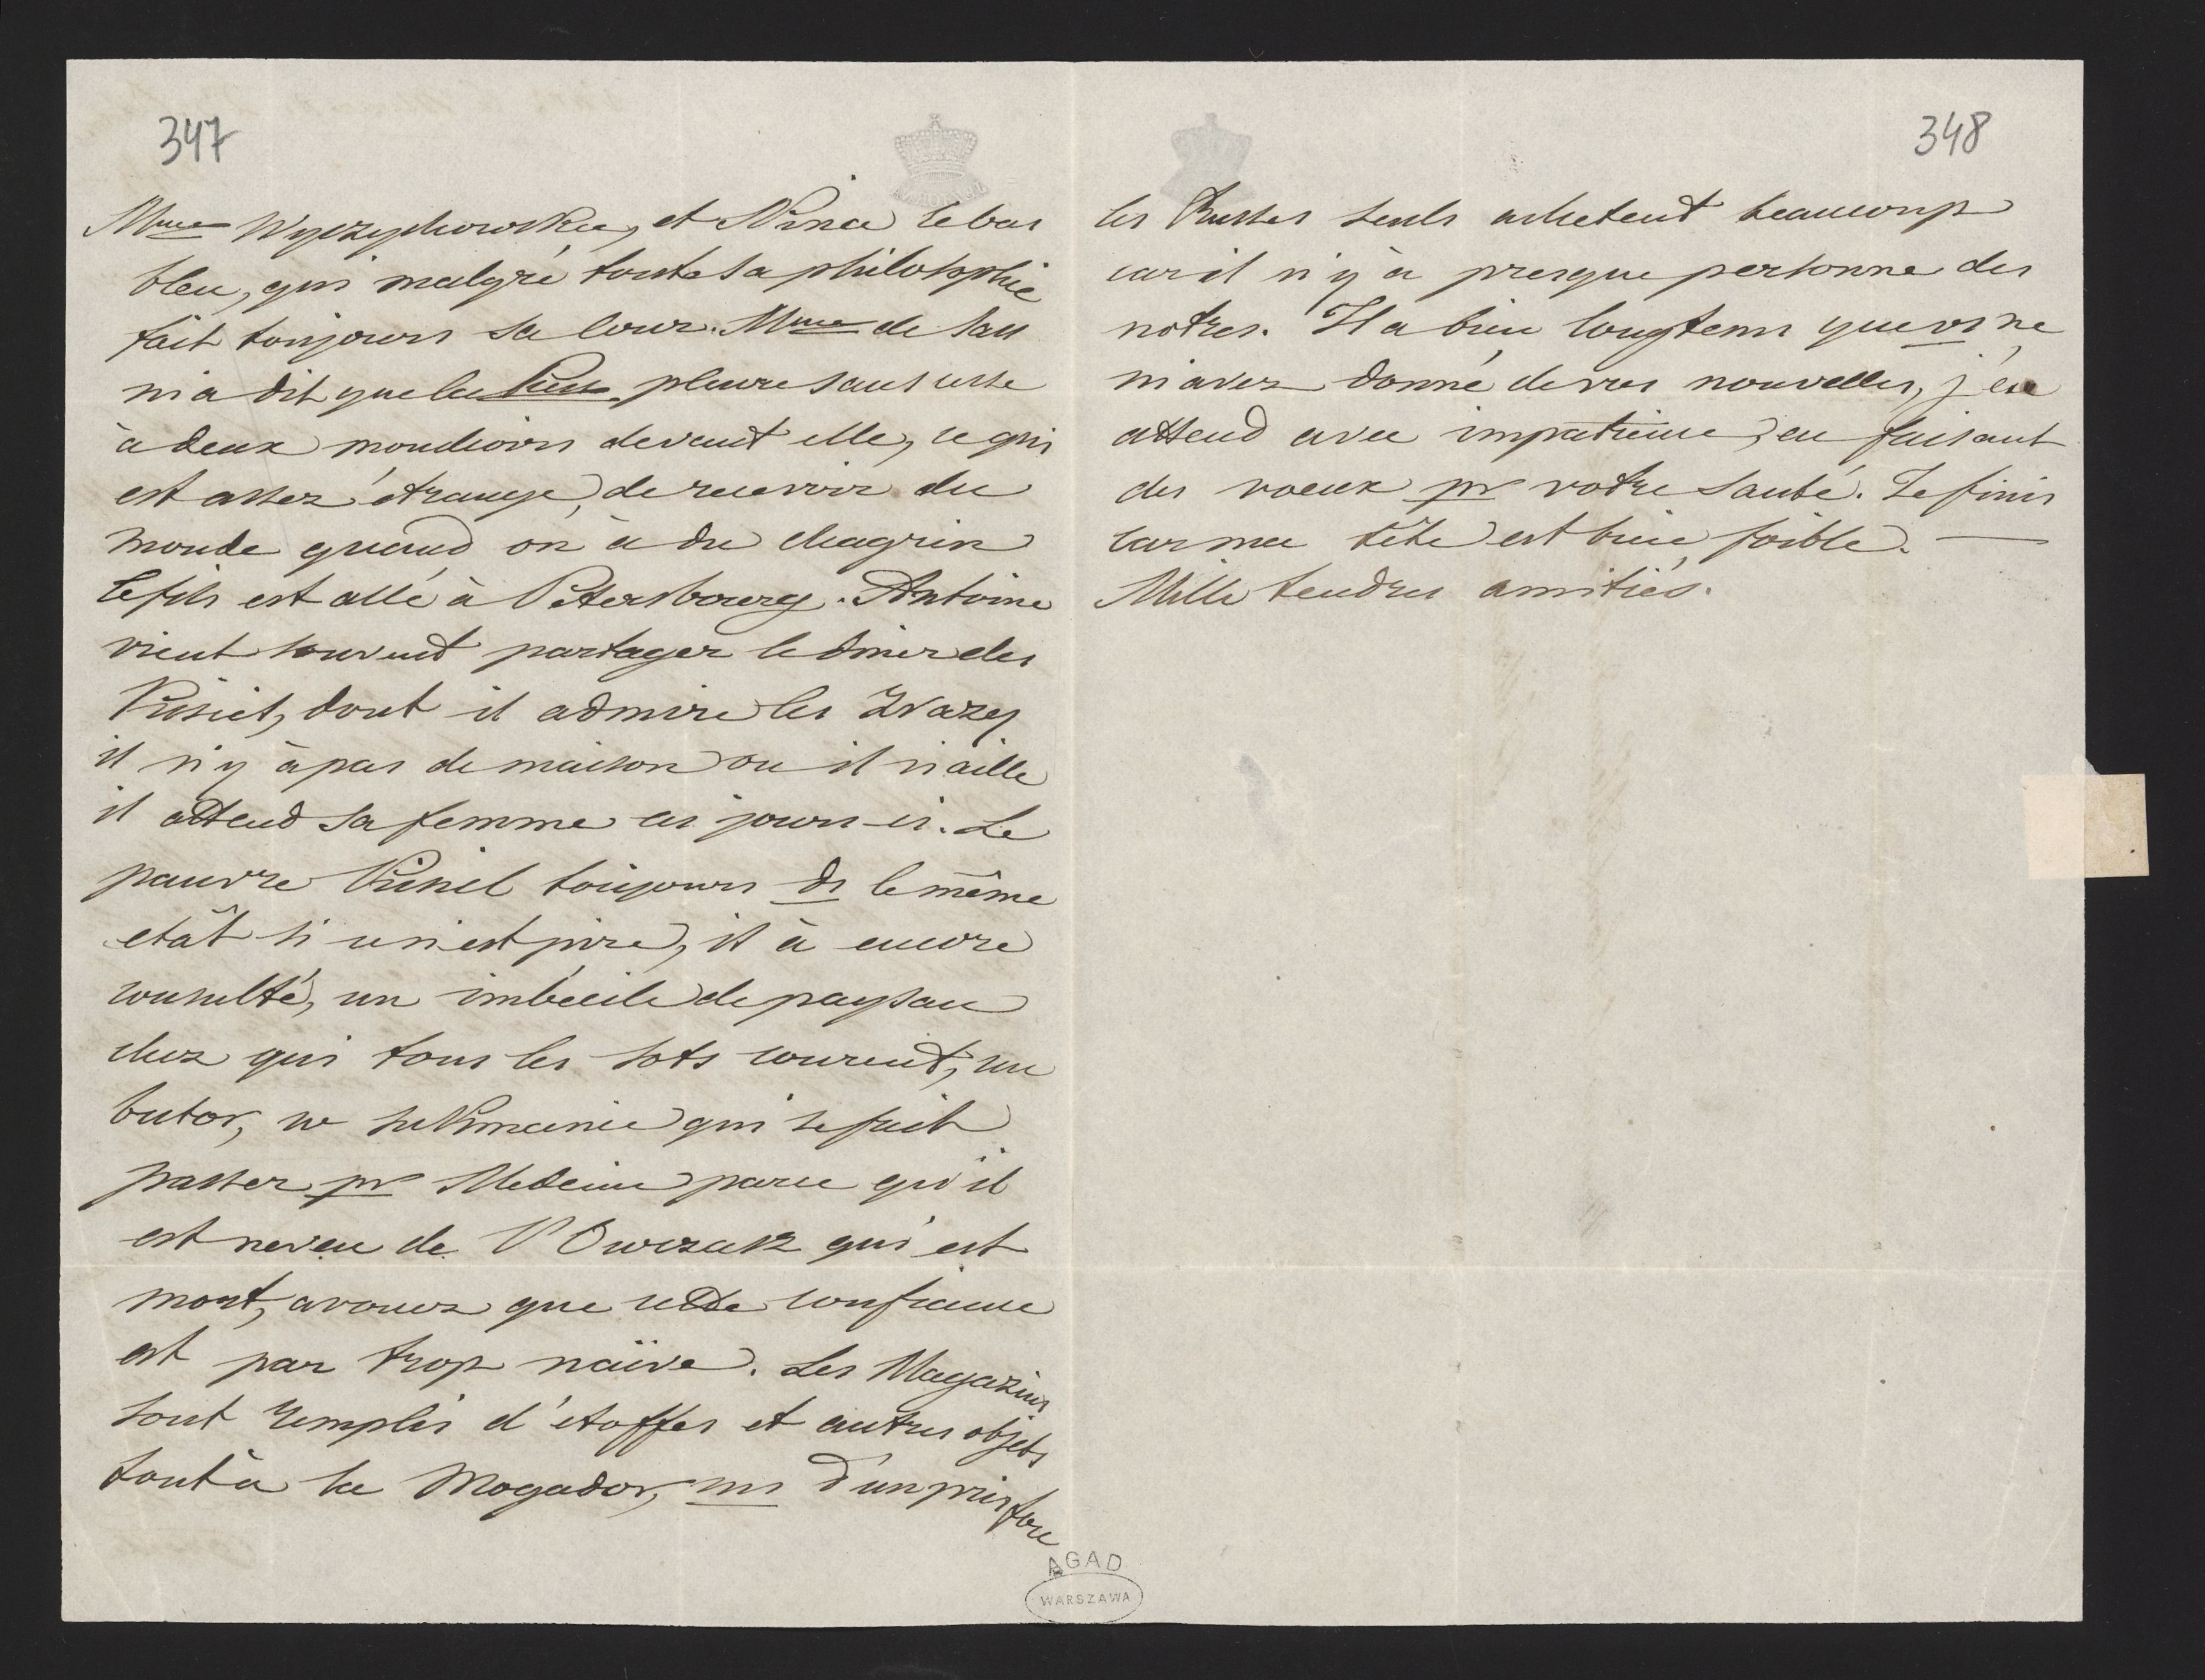 347
Mme Wyczychowska, et Nina le bas
bleu, qui malgré toute sa philosophie
fait toujours sa cour. Mme de Sass
m'a dit que la pleure sans cesse
à deux mouchoirs devant elle, ce qui
est assez étrange, de recevoir du
monde quand on à du chagrin
le fils est allé à Petersbourg. Antoine
vient souvent partager le diner des
dont il admire les Zrazy
il n'y à pas de maison ou il n'aille
il attend sa femme ces jours-ci. Le
pauvre toujours ds le même
etât si ce n'est pire, il à encore
consulté, un imbécile de paysan
chez qui tous les sots courent, un
butor, w sukmanie qui se fait
passer pr Medecin parce qu'il
est neveu de l'Owczarz qui est
mort, avouez que cette confiance
est par trop naïve. Les Magazins
sont remplis d'étoffes et autres objets
tout à la Mogador, ms d'un prix fou
AGAD
WARSZAWA
348
les Russes seuls achetent beaucoup
car il n'y à presque personne des
notres. Il a bien longtems que vs ne
m'avez donné de vos nouvelles, j'en
attend avec impatience, en faisant
des voeux pr votre santé. Je finis
car ma tête est bien foible. —
Mille tendres amitiés.